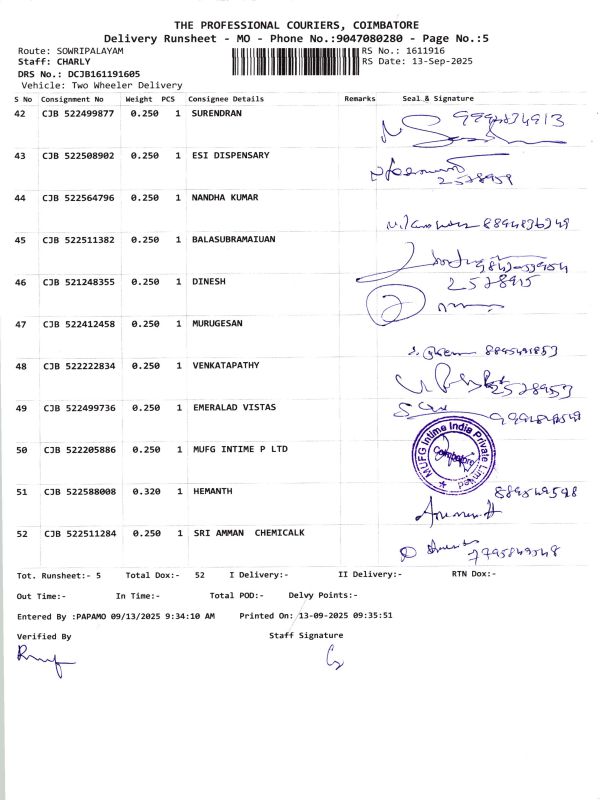 THE PROFESSIONAL COURIERS, COIMBATORE
Delivery Runsheet - MO - Phone No.:9047080280 - Page No.:5
Route: SOWRIPALAYAM RS No.: 1611916
Staff: CHARLY RS Date: 13-Sep-2025
DRS No.: DCJB161191605
Vehicle: Two Wheeler Delivery
S No Consignment No Weight PCS Consignee Details Remarks Seal & Signature
42 CJB 522499877 0.250 1 SURENDRAN
43 CJB 522508902 0.250 1 ESI DISPENSARY
2578959
44 CJB 522564796 0.250 1 NANDHA KUMAR
45 CJB 522511382 0.250 1 BALASUBRAMAIUAN
46 CJB 521248355 0.250 1 DINESH 2578915
47 CJB 522412458 0.250 1 MURUGESAN
48 CJB 522222834 0.250 1 VENKATAPATHY
2578953
49 CJB 522499736 0.250 1 EMERALAD VISTAS
50 CJB 522205886 0.250 1 MUFG INTIME P LTD MUFG Intime India Private Limited Coimbatore
51 CJB 522588008 0.320 1 HEMANTH
52 CJB 522511284 0.250 1 SRI AMMAN CHEMICALK
Tot. Runsheet:- 5 Total Dox:- 52 I Delivery:- II Delivery:- RTN Dox:-
Out Time:- In Time:- Total POD:- Delvy Points:-
Entered By :PAPAMO 09/13/2025 9:34:10 AM Printed On: 13-09-2025 09:35:51
Verified By Staff Signature